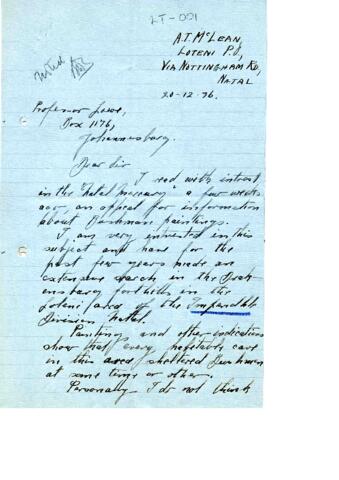 LT-001
noted
A.T. McLean,
Loteni P.O,
Via Nottingham Rd,
Natal
20-12-36.
Professor Lowe,
Box 1176,
Johannesburg.
Dear Sir
I read with interest
in the "Natal Mercury" a few weeks
ago, an appeal for information
about Bushman paintings.
I am very interested in this
subject and have for the
past few years made an
extensive search in the Drak-
ensberg foothills in the
Loteni area of the Impendhle
Division Natal.
Painting and other indications
show that every habitable cave
in this area sheltered Bushmen
at some time or other.
Personally I do not think